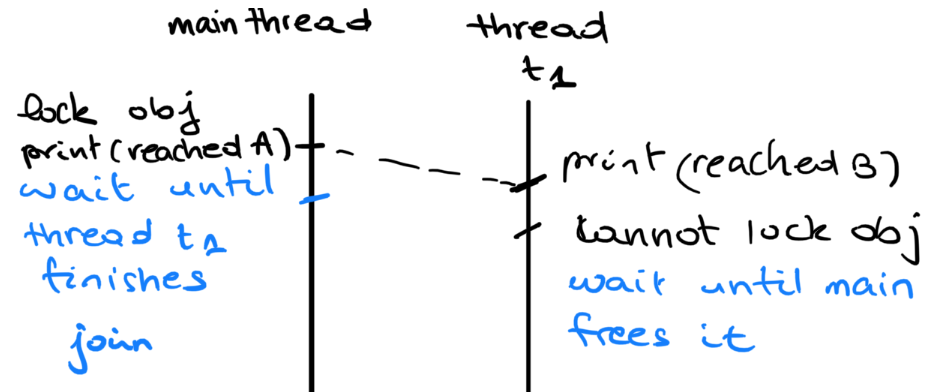 main thread
thread
t1
lock obj
print (reached A)
wait until
thread t1
finishes
join
print (reached B)
cannot lock obj
wait until main
frees it